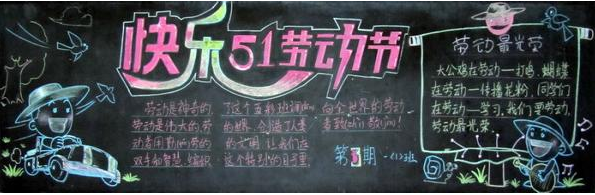 快乐51劳动节
劳动是神奇的,
劳动是伟大的,劳
动者用勤(qín)劳的
双手和智慧,编织
了这个五彩班斓(lán)
的世界,创造了人类
的文明。让我们在
这个特别的日子里,
向全世界的劳动
者致(zhì)敬(jìng)!
第3期
劳动最光荣
大公鸡在劳动—打鸣,蝴蝶
在劳动—传播花粉,同学们
在劳动—学习,我们要劳动,
劳动最光荣。